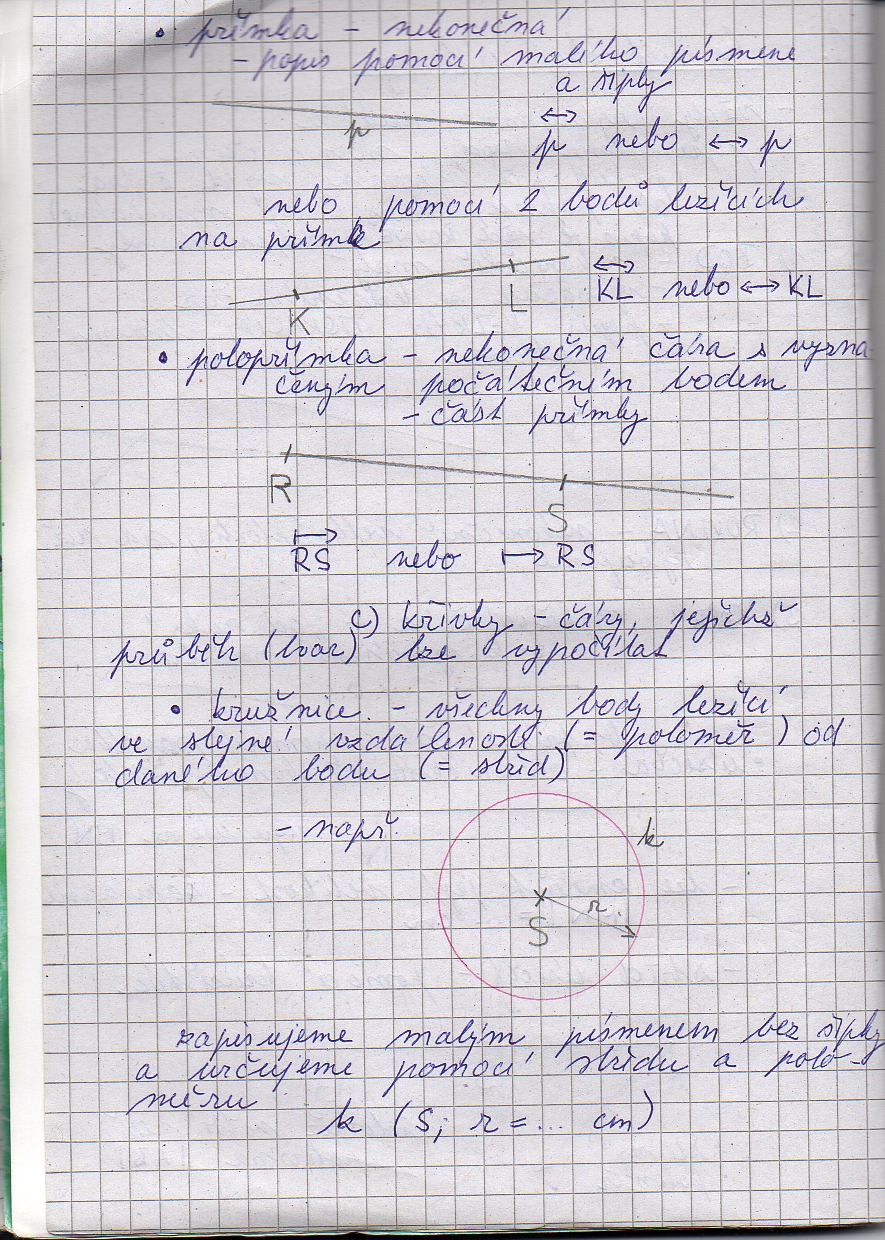 • přímka - nekonečná
- popis pomocí malého písmene
a šipky
p
↔
p nebo ↔ p
nebo pomocí 2 bodů ležících
na přímce
K L
↔
KL nebo ↔ KL
• polopřímka - nekonečná čára s vyzna-
čeným počátečním bodem
- část přímky
R
S
↦
RS nebo ↦ RS
c) křivky - čáry, jejichž
průběh (tvar) lze vypočítat
• kružnice - všechny body ležící
ve stejné vzdálenosti (= poloměr) od
daného bodu (= střed)
- např.
k
r
S
zapisujeme malým písmenem bez šipky
a určujeme pomocí středu a polo-
měru
k (S; r = ... cm)